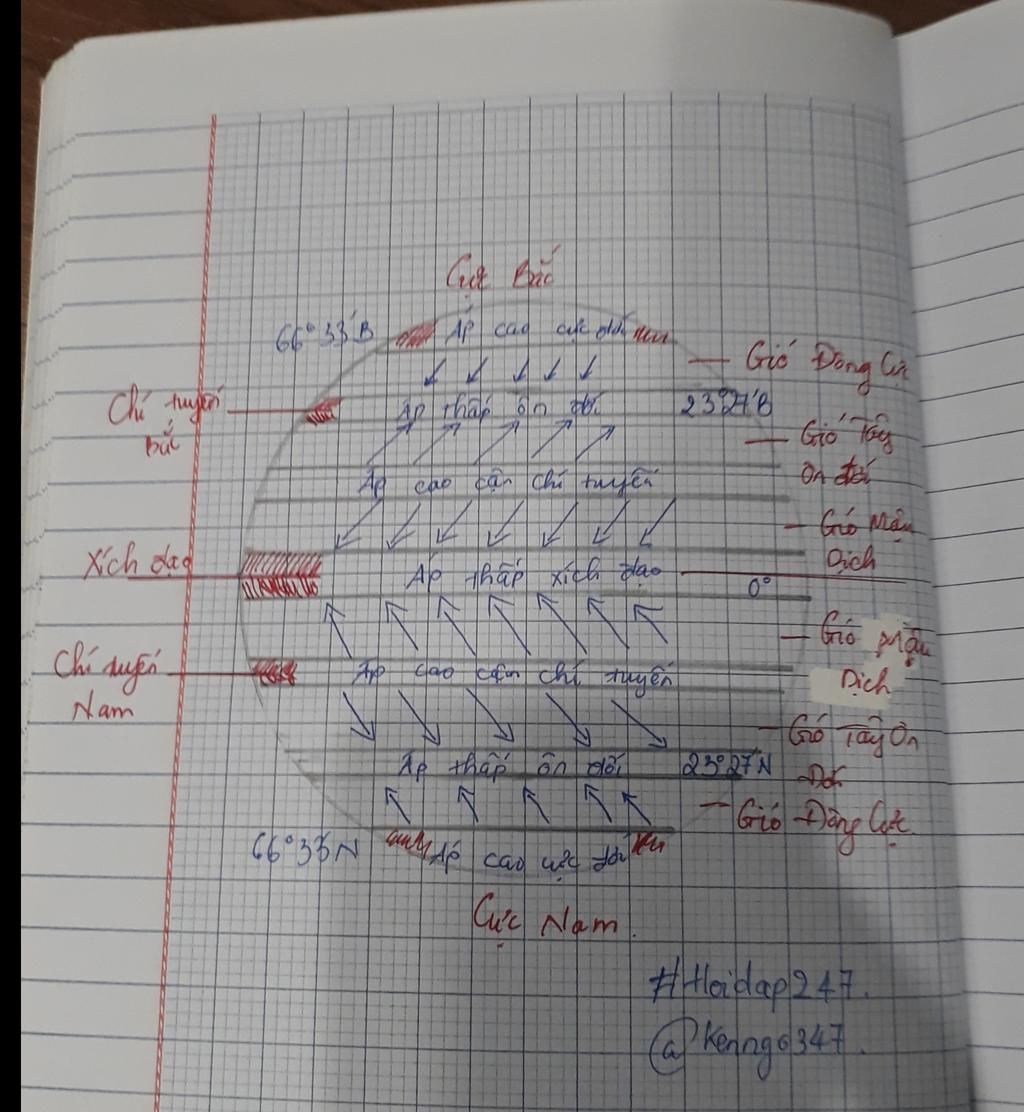 Cực Bắc
66°33'B
Áp cao cực đới
Gió Đông Cực
Chí tuyến
bắc
Áp thấp ôn đới
23°27'B
Gió Tây
Ôn đới
Áp cao cận chí tuyến
Gió Mậu
Dịch
Xích đạo
Áp thấp xích đạo
0°
Gió Mậu
Dịch
Chí tuyến
Nam
Áp cao cận chí tuyến
Gió Tây Ôn
Đới
Áp thấp ôn đới
23°27'N
Gió Đông Cực
66°33'N
Áp cao cực đới
Cực Nam.
#Hoidap247.
@kenngo347.